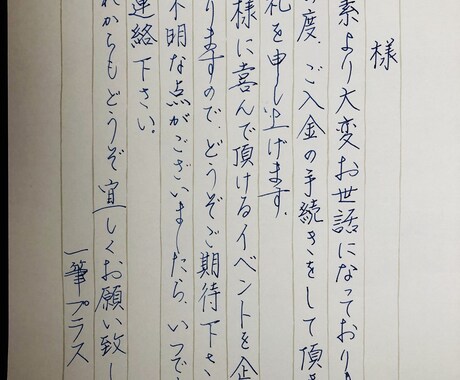 様
素より大変お世話になっており
の度、ご入金の手続きをして頂
礼を申し上げます。
様に喜んで頂けるイベントを企
りますので、どうぞご期待下さ
不明な点がございましたら、いつで
連絡下さい。
れからもどうぞ宜しくお願い致し
一筆プラス